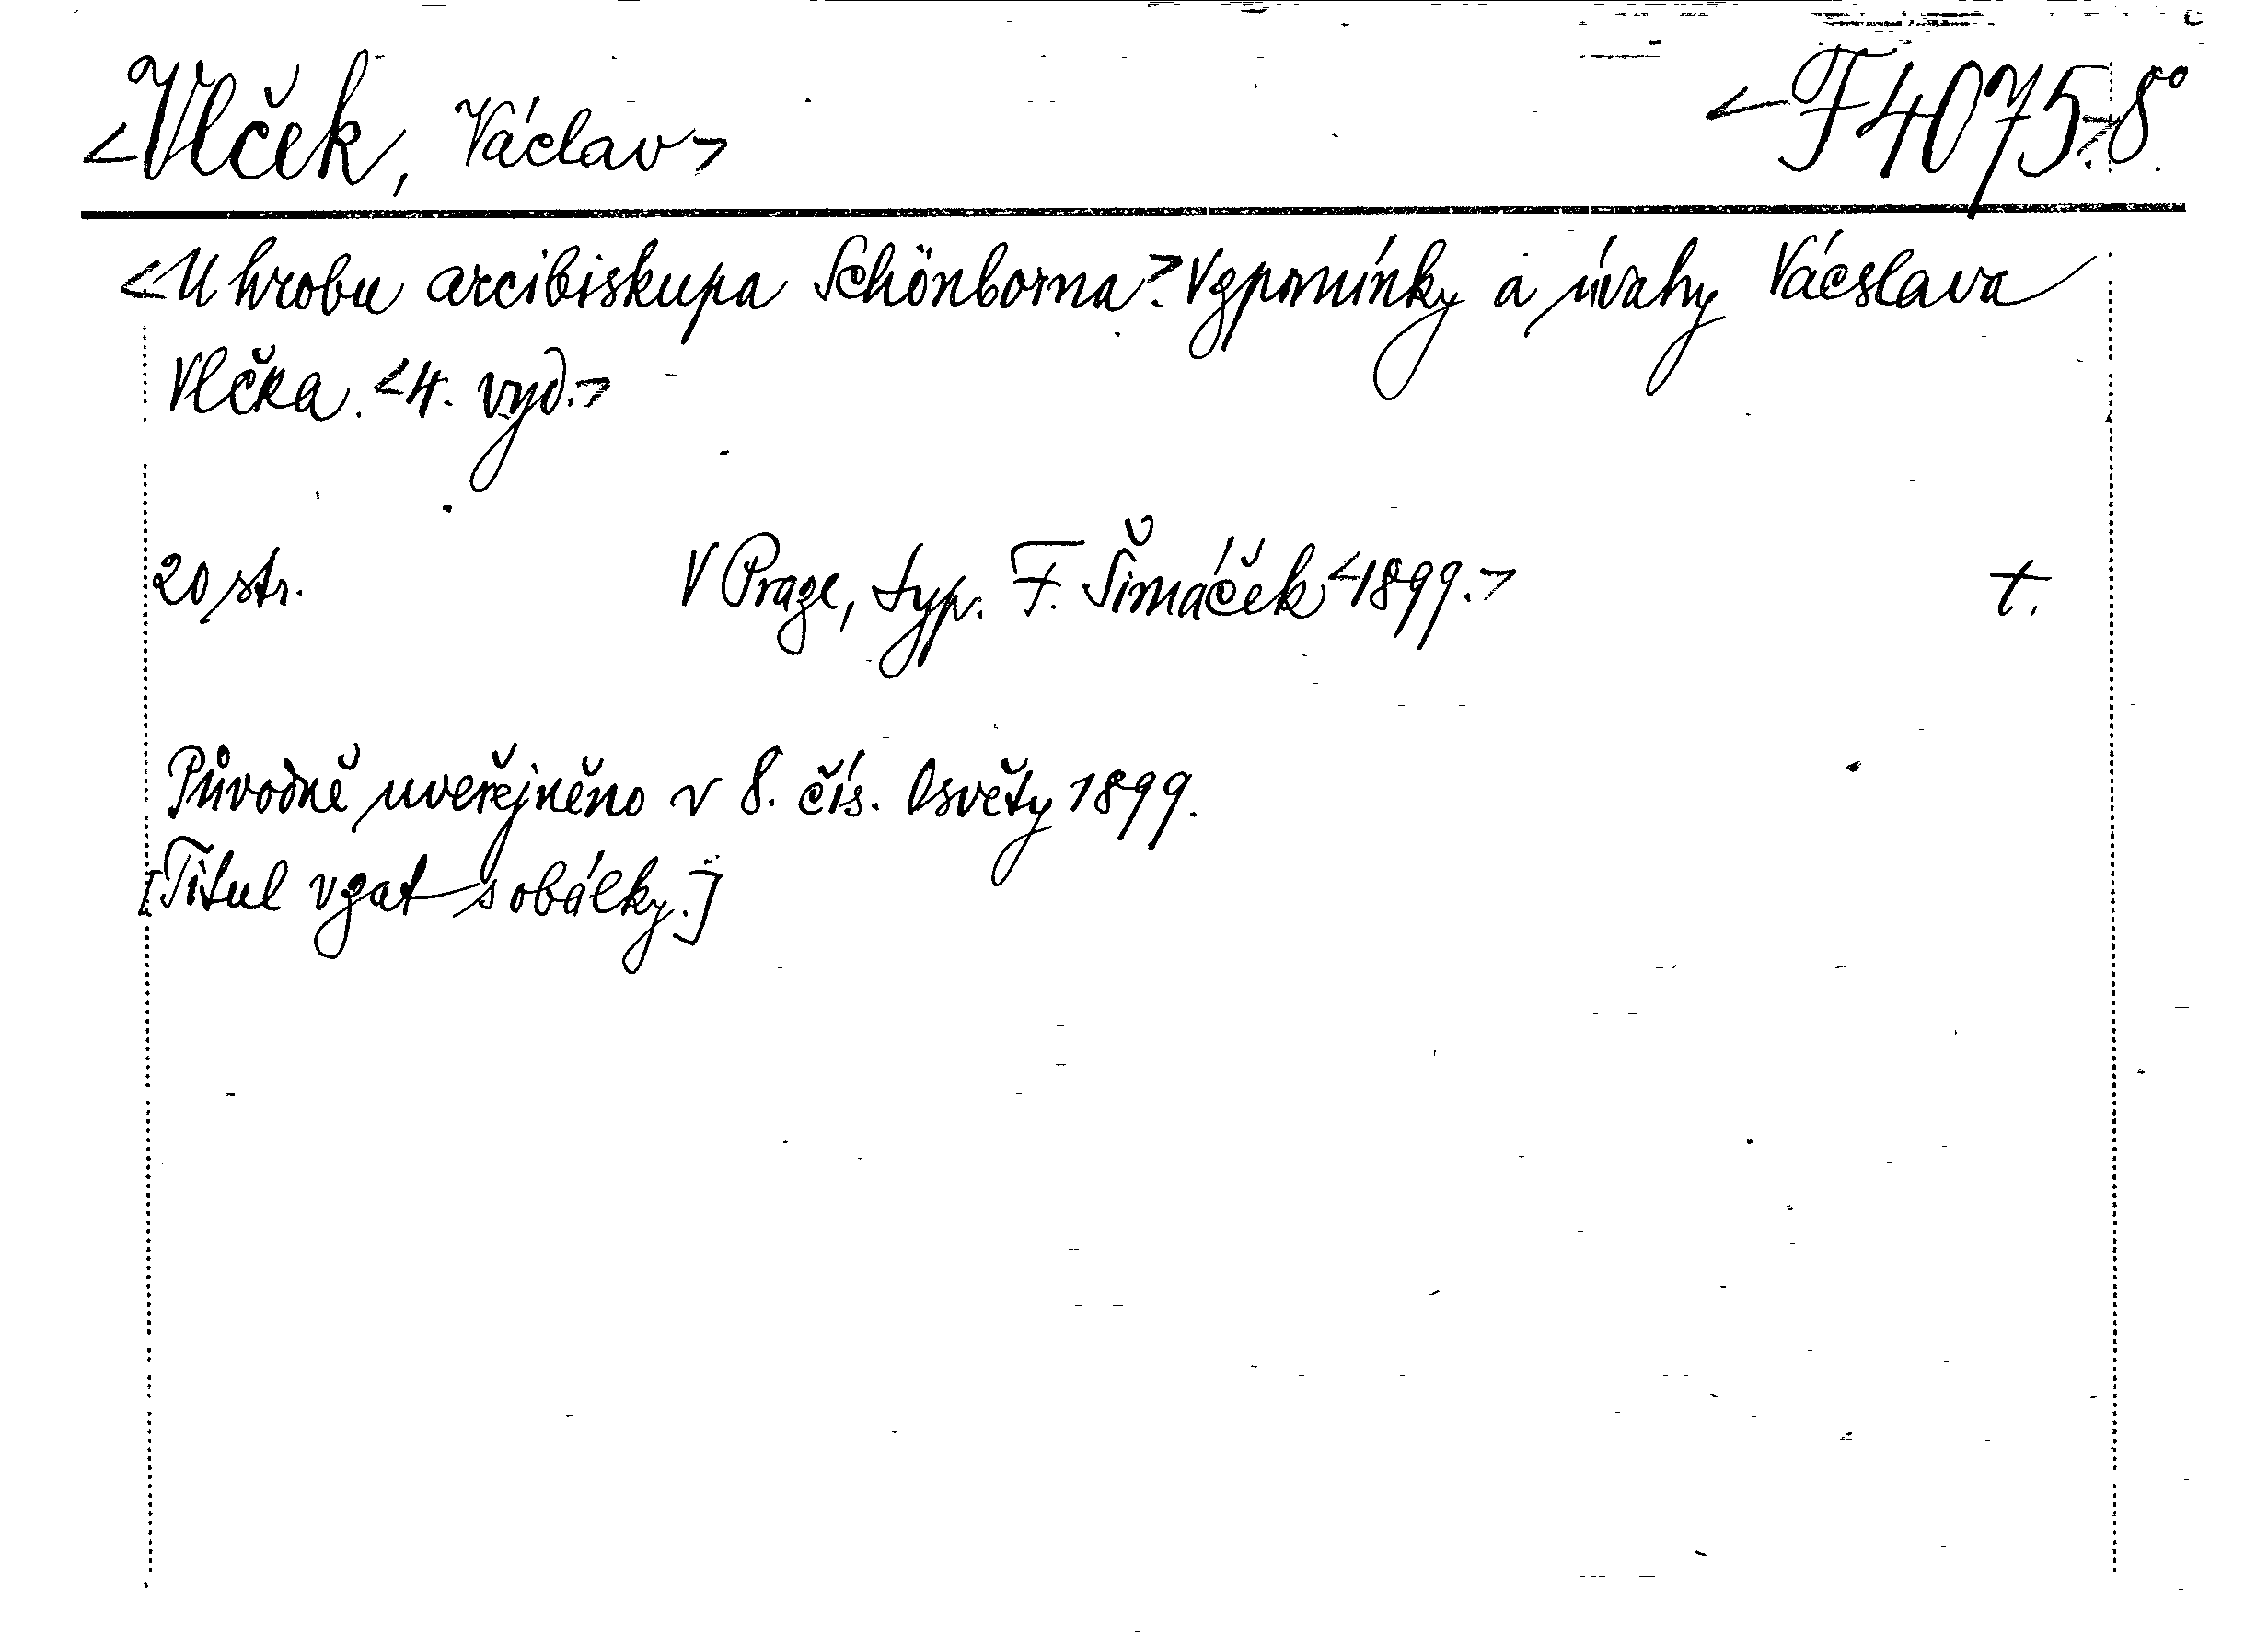 <Vlček, Václav> <F 4075.>8°.
<U hrobu arcibiskupa Schönborna.> Vzpomínky a úvahy Vácslava
Vlčka. <4. vyd.>
20 str. V Praze, typ. F. Šimáček <1899.> t.
Původně uveřejněno v 8. čís. Osvěty 1899.
[Titul vzat s obálky.]